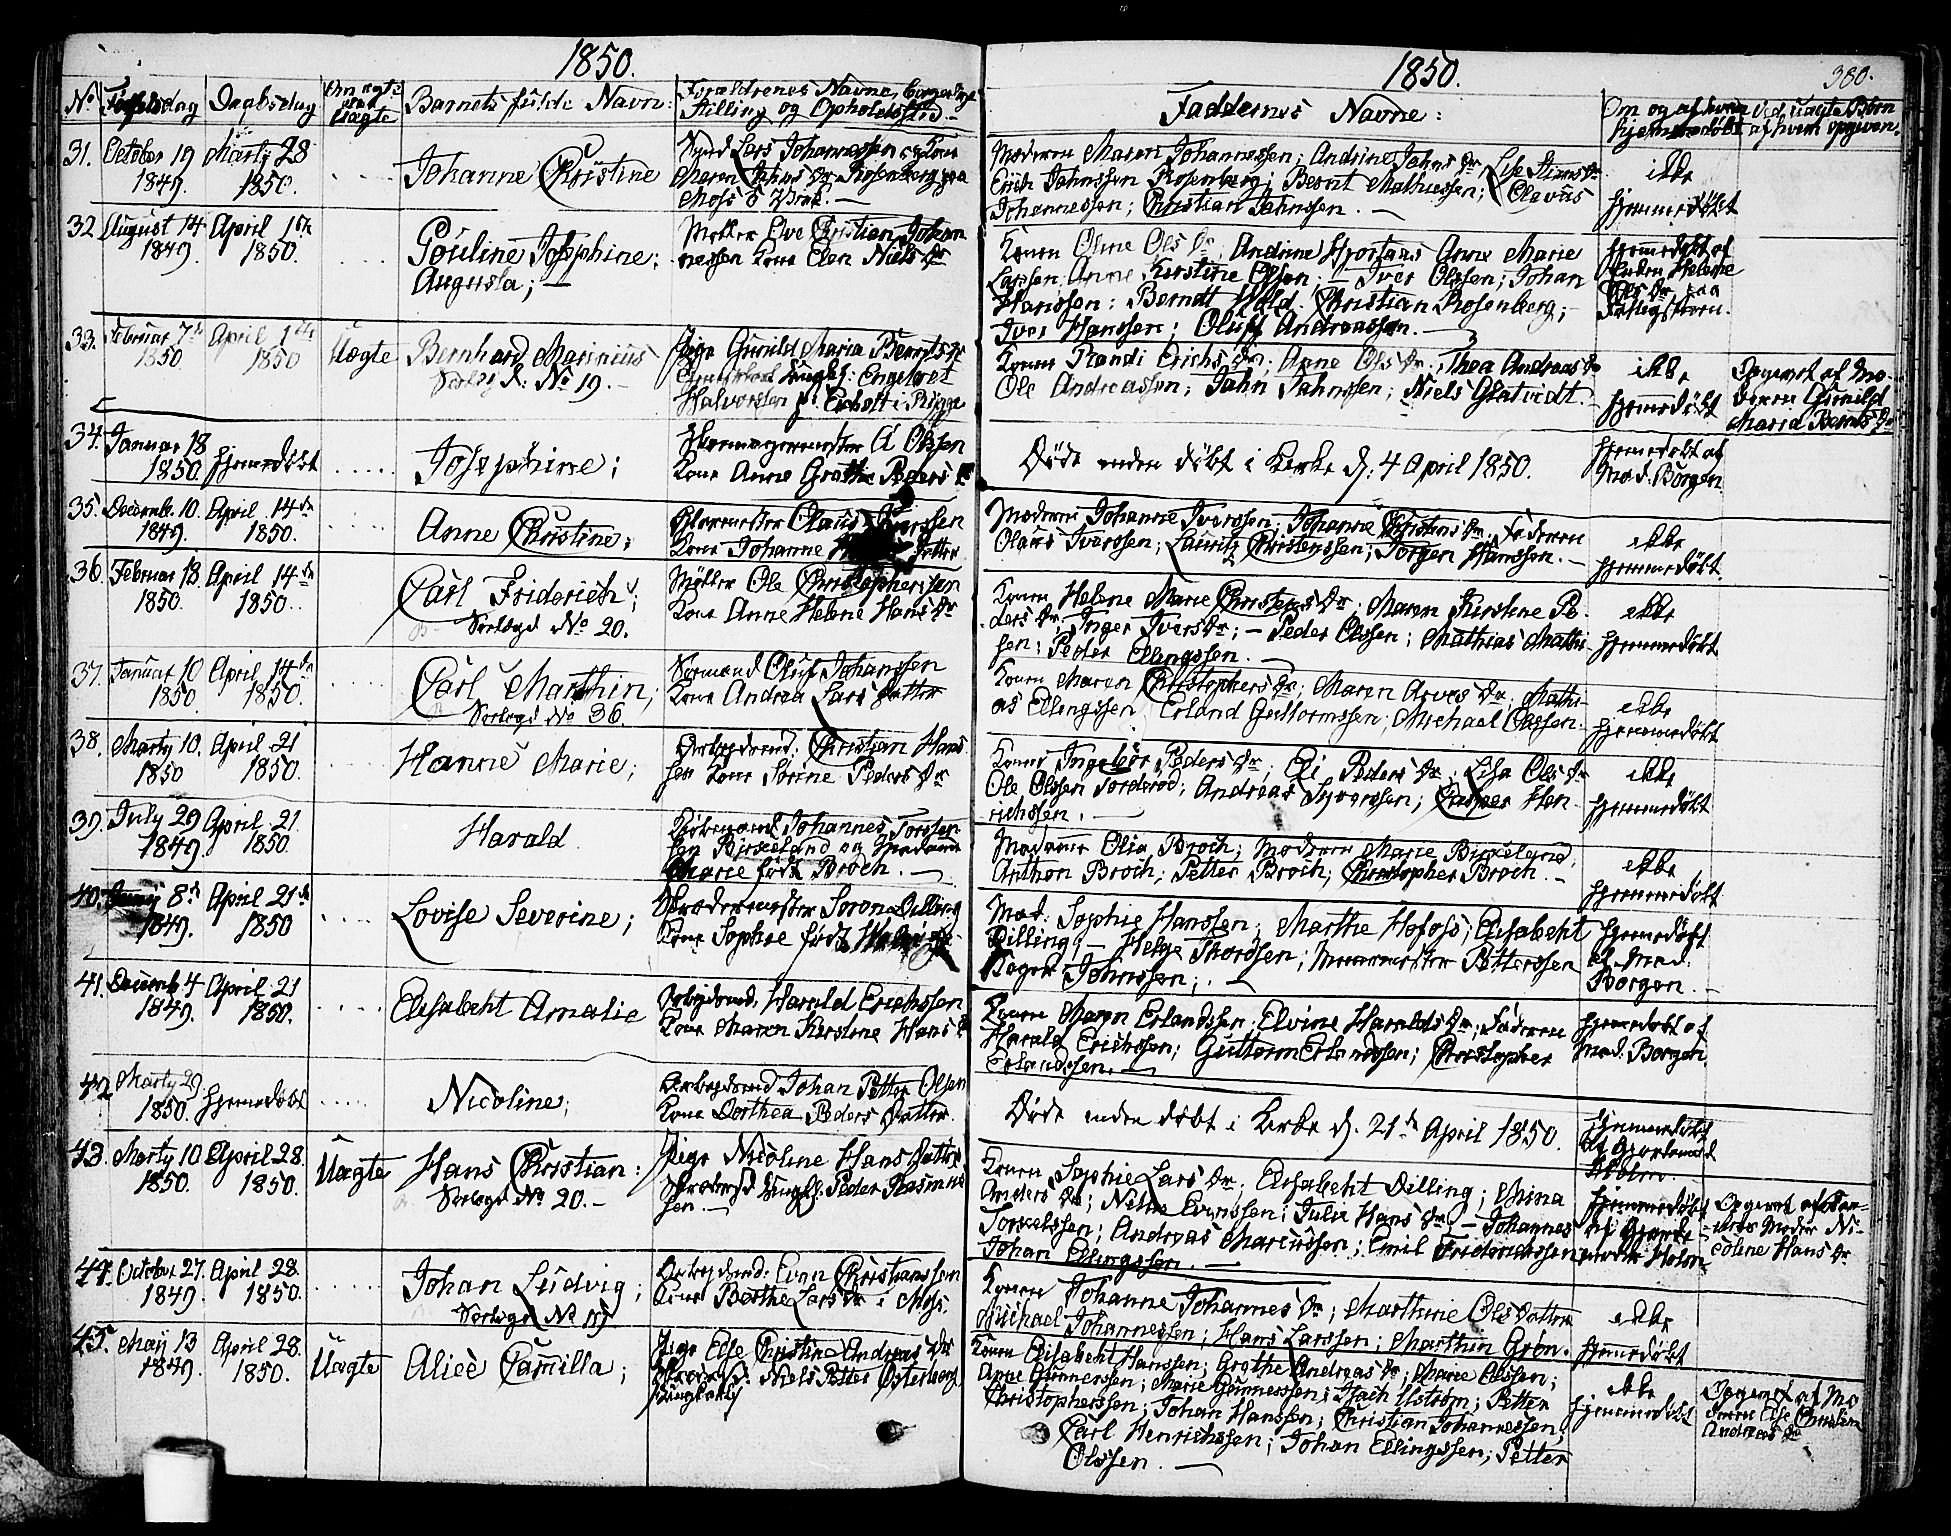 1850.
1850.
380.
No Daabsdag Barnets fulde Navn: Forældrenes Navne,
Stilling og Opholdssted.
Faddernes Navne:
Om og af hvem hjemmedøbt
Ved Uægte Børn af hvem opgiven.
31. October 19 1849. Marty 28 1850. Johanne Christine
Maren Jahns Dr Rosenberg paa
Moderen Maren Johannessen; Andrine Jahns Dr
Erich Jahnssen Rosenberg; Bernt Mathiessen; Olavus
Johannessen; Christian Jahnssen. —
ikke
hjemmedøbt
32 August 14 1849. April 1ste 1850. Pouline Josephine;
Augusta; —
Møller Christian Johan
nessen Kone Elen Niels Dr
Konen Oline Ols Dr Andrine Hjortaas Anne Marie
Larssen; Anne Kirstine Olsen; — Iver Olssen; Johan
Hanssen: Berndt Christian Rosenberg; —
Iver Hanssen; Oluff Andreassen. —
hjemedøbt af
Helene
Ols Dr paa
33. Februar 7de 1850. April 1ste 1850 Uægte Bernhard Marinius
No 19. —
Pige Gunild Maria Bernts Dr
Engebret
Halvorssen i Rygge
Konen Randi Erichs Dr; Anne Ols Dr; Thea Andreas Dr
Ole Andreassen; Jahn Jahnssen; Niels
ikke
hjemedøbt
Opgivet af Mo-
deren Gunild
Maria Bernts Dr
34. Januar 18 1850. hjemedøbt Josephine;
Skomagermester A Olssen
Kone Anne Grethe Peders Dr
Døde uden døbt i Kirke d: 4 April 1850.
hjemedøbt af
Mad. Borgen
35. Decemb. 10. 1849. April 14de 1850. Anne Christine;
Olaus Iverssen
Kone Johanne
Moderen Johanne Iverssen; Johanne Christens Dr; Faderen
Olaus Iverssen; Lauritz Christenssen; Jørgen Hanssen. —
ikke
hjemmedøbt.
36. Februar 18. 1850. April 14de 1850. Carl Friderich;
No 20.
Møller Ole Christophersen
Kone Anne Helene Hans Dr
Konen Helene Marie Christens Dr; Maren Kirstine Pe-
ders Dr; Inger Ivers Dr; — Peder Olssen; Mathias Mathi-
sen; Peder Ellingssen. —
ikke
hjemmedøbt
37. Januar 10 1850. April 14de 1850. Carl Marthin;
No 36.
Sømand Oluf Johanssen
Kone Andrea Lars Datter
Konen Maren Christophers Dr; Maren Arves Dr; Mathi-
as Ellingssen Erland Guttormssen, Michael Olssen.
ikke
hjemmedøbt
38. Marty 10. 1850 April 21 1850. Hanne Marie;
Arbejdsmd; Christian Hans
sen Kone Sørine Peders Dr
Konen Ingebor Peders Dr; Eli Peders Dr; Lisa Ols Dr
Ole Olssen Andreas Syverssen; Casper Hen-
richssen. —
ikke
hjemmedøbt
39. July 29 1849. April 21 1850. Harald
Johannes Torsten
sen Birkeland og Madame
Marie født Broch. —
Madame Olia Broch; Moderen Marie Birkeland;
Anthon Broch; Petter Broch; Christopher Broch. —
ikke
hjemmedøbt
40. 8de 1849. April 21de 1850 Lovise Severine;
Skrædermester Søren Dilling
Kone Sophie født
Mad: Sophie Hanssen; Marthe Hofoss; Elisabeht
Dilling; — Helge Thordssen; Petterssen
Johnssen; —
hjemedøbt
af Mad.
Borgen. —
41. Decemb 4 1849. April 21 1850. Elisabeht Amalie
Arbejdsmd. Harald Erichssen
Kone Maren Kirstine Hans Dr
Konen Maren Erlandssen; Elvine Haralds Dr; Faderen
Harald Erichssen; Guttorm Erlandssen; Christopher
Erlandssen. —
hjemedøbt af
Mad. Borgen
42 Marty 29 1850. hjemedøbt Nicoline;
Arbejdsmd Johan Petter Olsen
Kone Dorthea Peders Datter.
Døde uden døbt i Kirke d. 21de April 1850.
hjemmedøbt
af
Holm.
43. Marty 10 1850. April 28 1850. Uægte Hans Christian:
No 20. —
Pige Nicoline Hans Datter
Peder Rasmus
sen. —
Konen Sophie Lars Dr; Elisabeht Dilling; Mina
Anders Dr; Evenssen; Julie Hans Dr; — Johannes
Torkelssen; Andreas Marcussen; Emil Friderichssen
Johan Ellingssen. —
hjemmedøbt
af
Holm
Opgivet af Bar-
nets Moder Ni-
coline Hans Dr
44. October 27. 1849. April 28. 1850. Johan Ludvig;
No 19
Arbejdsmd: Even Christianssen
Kone Berthe Lars Dr i Moss.
Konen Johanne Johannes Dr; Marthine Ols Datter
Michael Johannessen; Hans Larssen; Marthin Grøn.
ikke
hjemmedøbt
45. May 13 1849. April 28. 1850. Uægte Alice Camilla;
Pige Else Christine Andreas Dr
Niels Petter Østerberg
Konen Elisabeht Hanssen; Grethe Andreas Dr; Marie Olssen;
Anne Gunnerssen; Marie Gunnerssen; Petter
Christopherssen; Johan Hanssen; Christian Johannessen;
Carl Henrichssen; Johan Ellingssen; Petter
Olssen. —
ikke
hjemmedøbt
Opgivet af Mo
deren Else Christine
Andreas Dr